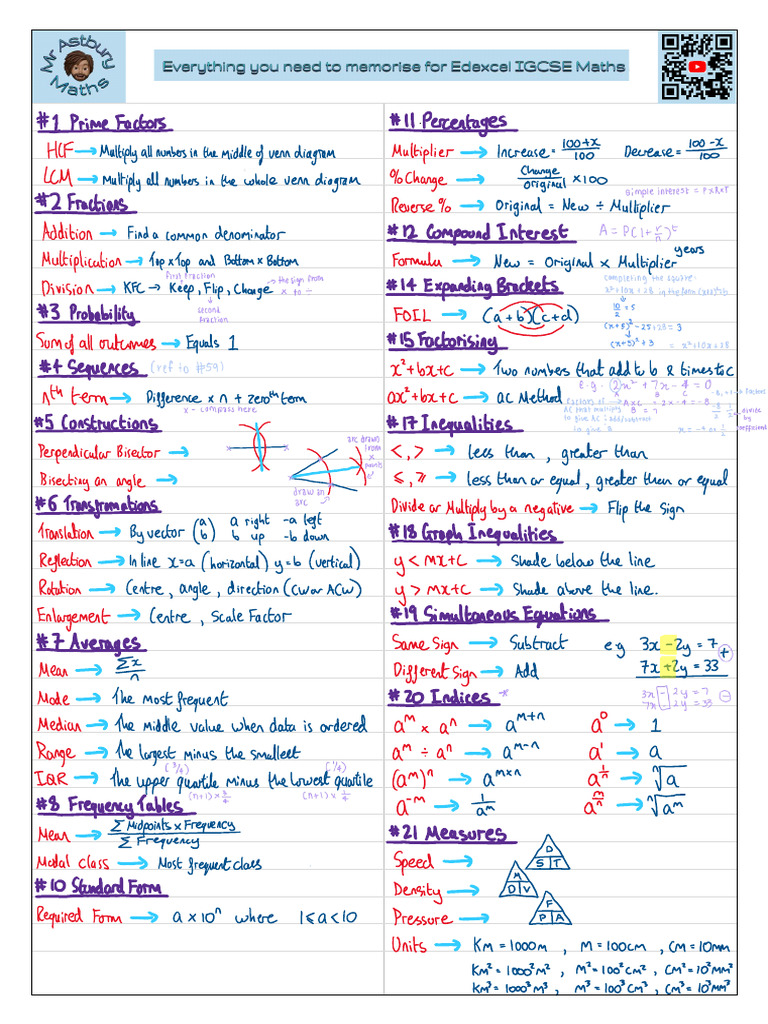 Mr Astbury Maths
Everything you need to memorise for Edexcel IGCSE Maths
#1 Prime Factors
HCF → Multiply all numbers in the middle of venn diagram
LCM → Multiply all numbers in the whole venn diagram
#2 Fractions
Addition → Find a common denominator
Multiplication → Top x Top and Bottom x Bottom
first fraction
Division → KFC → Keep, Flip, Change → the sign from x to ÷
second fraction
#3 Probability
Sum of all outcomes → Equals 1
#4 Sequences (ref to #59)
nth term → Difference x n + zeroth term
x - compass here
#5 Constructions
Perpendicular Bisector →
arc drawn from x points
Bisecting an angle →
draw an arc
#6 Transfromations
Translation → By vector (a b) a right -a left
b up -b down
Reflection → In line x=a (horizontal) y=b (vertical)
Rotation → Centre, angle, direction (CW or ACW)
Enlargement → Centre, Scale Factor
#7 Averages
Mean → Σx/n
Mode → The most frequent
Median → The middle value when data is ordered
Range → The largest minus the smallest
(3/4) (1/4)
IQR → The upper quartile minus the lowest quartile
(n+1) x 3/4 (n+1) x 1/4
#8 Frequency Tables
Mean → Σ Midpoints x Frequency / Σ Frequency
Modal class → Most frequent class
#10 Standard Form
Required Form → a x 10ⁿ where 1 ≤ a < 10
#11 Percentages
Multiplier → Increase = 100+x/100 Decrease = 100-x/100
% Change → Change/Original x 100
Simple interest = P x R x T
Reverse % → Original = New ÷ Multiplier
#12 Compound Interest A = P(1+r/n)ᵗ
Formula → New = Original x Multiplier^years
completing the square:
#14 Expanding Brackets
x²+10x+28 in the form
10/2 = 5
FOIL → (a+b)(c+d)
(x+5)² -25+28 = 3
(x+5)² + 3 = x²+10x+28
#15 Factorising
x²+bx+c → Two numbers that add to b & times to c
e.g. 2x² + 7x - 4 = 0
ax²+bx+c → AC Method
factors of AC that multiply to give AC : add/subtract to give B
A x C = 2 x -4 = -8
B = 7
-8, -1 → factors
divide by coefficient
x = -4 or 1/2
#17 Inequalities
<, > → less than, greater than
≤, ≥ → less than or equal, greater than or equal
Divide or Multiply by a negative → Flip the sign
#18 Graph Inequalities
y < mx+c → Shade below the line
y > mx+c → Shade above the line.
#19 Simultaneous Equations
Same Sign → Subtract e.g 3x - 2y = 7
Different Sign → Add 7x + 2y = 33 +
3x - 2y = 7
7x 2y = 33 -
#20 Indices *
aᵐ x aⁿ → aᵐ⁺ⁿ a⁰ → 1
aᵐ ÷ aⁿ → aᵐ⁻ⁿ a¹ → a
(aᵐ)ⁿ → aᵐˣⁿ a^(1/n) → ⁿ√a
a⁻ᵐ → 1/aᵐ a^(m/n) → ⁿ√aᵐ
#21 Measures
Speed → D S T
Density → M D V
Pressure → F P A
Units → KM = 1000M, M = 100CM, CM = 10MM
KM² = 1000²M², M² = 100²CM², CM² = 10²MM²
KM³ = 1000³M³, M³ = 100³CM³, CM³ = 10³MM³